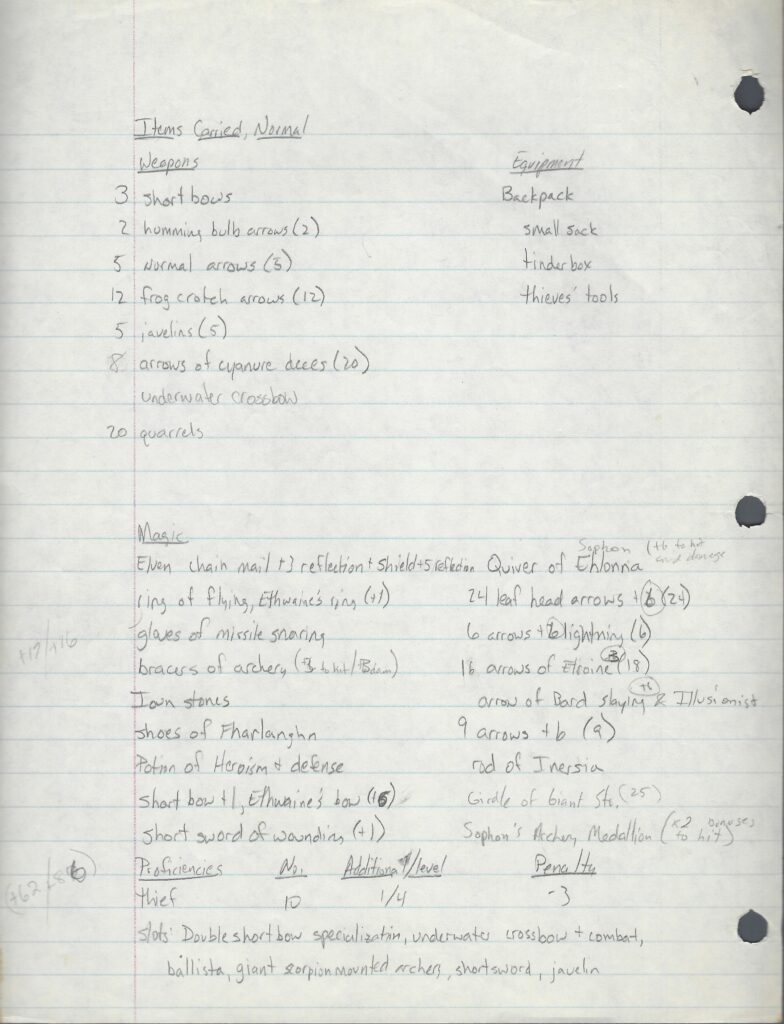 Items Carried, Normal
Weapons Equipment
3 short bows Backpack
2 humming bulb arrows (2) small sack
5 Normal arrows (5) tinder box
12 frog crotch arrows (12) thieves' tools
5 javelins (5)
8 arrows of cyanure deces (20)
underwater crossbow
20 quarrels
Magic
Sophon (+6 to hit and damage
Elven chain mail +3 reflection + Shield+5 reflection Quiver of Ehlonna
ring of flying, Ethwaine's ring (+1) 24 leaf head arrows +6 (24)
gloves of missile snaring 6 arrows +6 lightning (6)
+17/+16
bracers of archery ( to hit/ dam) 16 arrows of (18)
Ioun stones arrow of Bard slaying +6 & Illusionist
shoes of Fharlanghn 9 arrows +6 (9)
Potion of Heroism & defense rod of Inersia
short bow +1, Ethwaine's bow (+6) Girdle of Giant Str. (25)
short sword of wounding (+1) Sophon's Archery Medallion (x2 bonuses to hit)
Proficiencies No. Additional/level Penalty
thief 10 1/4 -3
slots: Double short bow specialization, underwater crossbow + combat,
ballista, giant scorpion mounted archery, shortsword, javelin